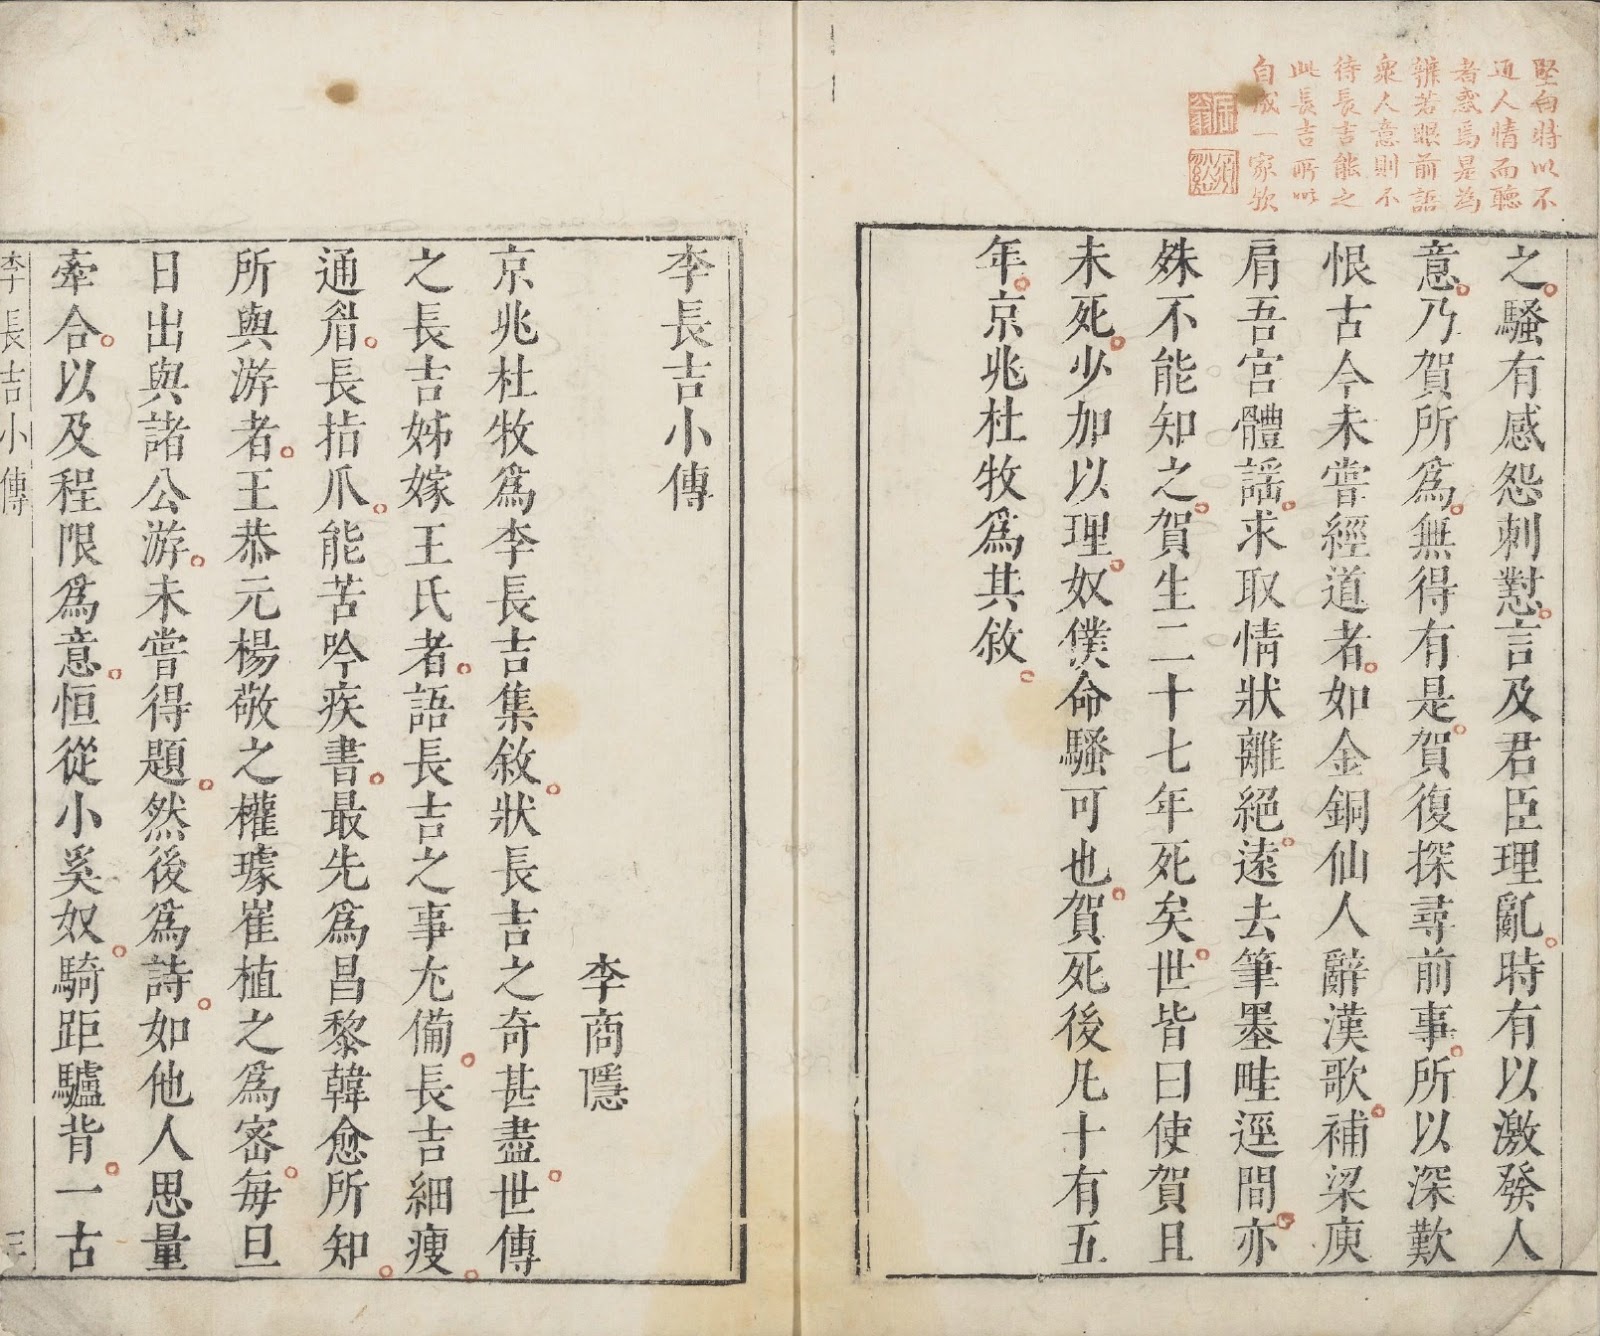 堅白時以不
近人情而聽
者惑焉是為
辨若眼前語
衆人意則不
待長吉能之
此長吉所以
自成一家歟
之騷有感怨刺懟言及君臣理亂時有以激發人
意乃賀所爲無得有是賀復探尋前事所以深歎
恨古今未嘗經道者如金銅仙人辭漢歌補梁庾
肩吾宮體謡求取情狀離絕遠去筆墨畦逕間亦
殊不能知之賀生二十七年死矣世皆曰使賀且
未死少加以理奴僕命騷可也賀死後凡十有五
年京兆杜牧爲其敘
李長吉小傳
李商隱
京兆杜牧爲李長吉集敘狀長吉之奇甚盡世傳
之長吉姊嫁王氏者語長吉之事尢備長吉細瘦
通眉長指爪能苦吟疾書最先爲昌黎韓愈所知
所與游者王恭元楊敬之權璩崔植之爲密每旦
日出與諸公游未嘗得題然後爲詩如他人思量
牽合以及程限爲意恒從小奚奴騎距驢背一古
李長吉小傳
三